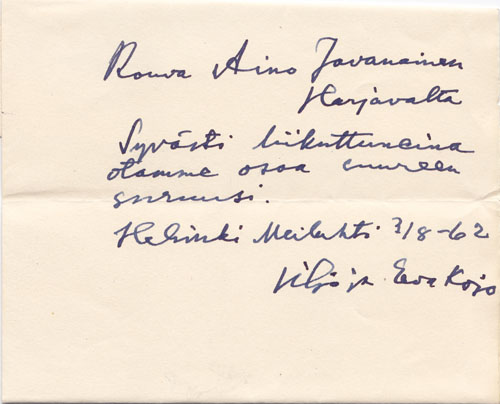 Rouva Aino Javanainen
Harjavalta
Syvästi liikuttuneina
otamme osaa suureen
suruusi.
Helsinki Meilahti 7/8-62
Viljo ja Eeva Kojo